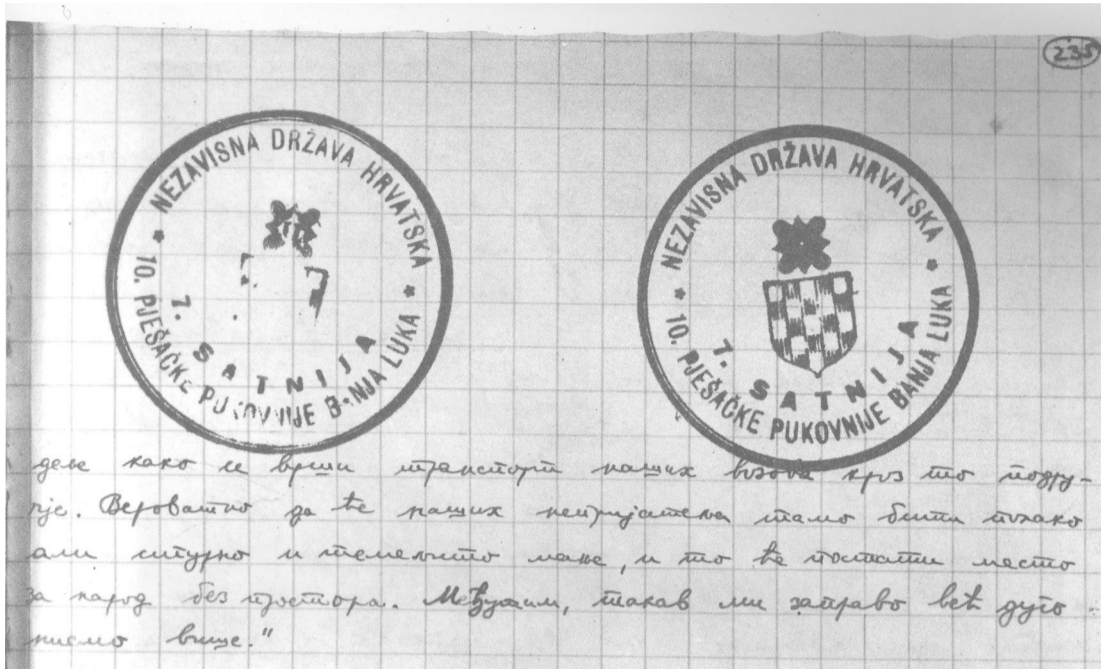 235
NEZAVISNA DRŽAVA HRVATSKA
7. SATNIJA
10. PJEŠAČKE PUKOVNIJE B NJA LUKA
NEZAVISNA DRŽAVA HRVATSKA
7. SATNIJA
10. PJEŠAČKE PUKOVNIJE BANJA LUKA
деле како се врши транспорт наших возова кроз то подру-
чје. Вероватно да ће наших непријатеља тамо бити полако
али сигурно и темељито мање, и то ће постати место
за народ без простора. Међутим, такав ми заправо већ дуго
нисмо више."